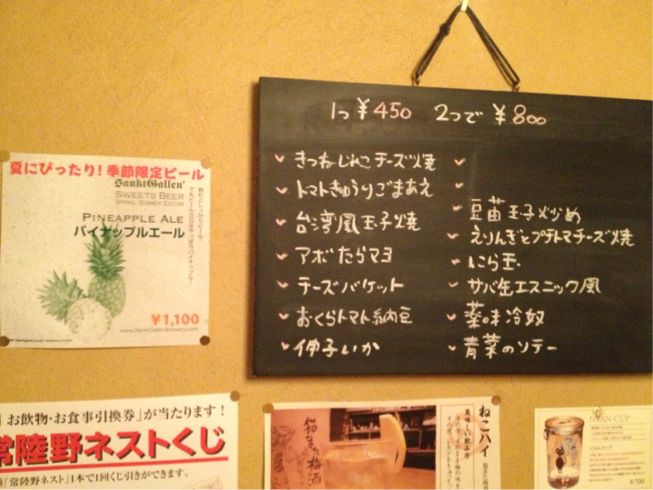 1つ ¥450 2つで ¥800
きつねじゃこチーズ焼
トマトきゅうりごまあえ
台湾風玉子焼
アボたらマヨ
チーズバケット
おくらトマト納豆
伸子いか
豆苗玉子炒め
えりんぎとプチトマチーズ焼
にら玉
サバ缶エスニック風
薬味冷奴
青菜のソテー
夏にぴったり!季節限定ビール
SanktGallen
SWEETS BEER
SPRING/SUMMER EDITION
PINEAPPLE ALE
パイナップルエール
¥1,100
www.SanktGallenBrewery.com
お飲物・お食事引換券」が当たります!
常陸野ネストくじ
常陸野ネスト」1本で1回くじ引きができます。
猫また梅酒
ねこハイ
美味しい飲み方
NYAN CUP
にゃんカップ
¥700